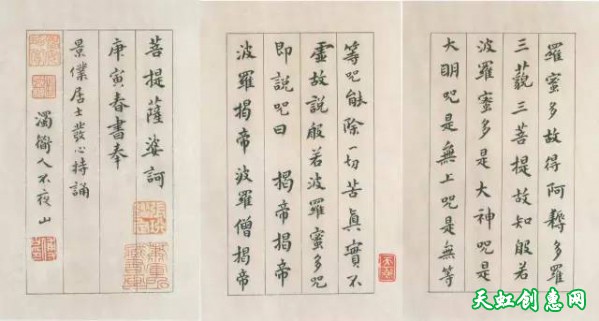 羅蜜多故得阿耨多羅
三藐三菩提故知般若
波羅蜜多是大神咒是
大明咒是無上咒是無等
等咒能除一切苦真實不
虛故說般若波羅蜜多咒
即說咒曰 揭帝揭帝
波羅揭帝波羅僧揭帝
菩提薩婆訶
庚寅春書奉
景僕居士發心持誦
人不夜山
天虹创惠网